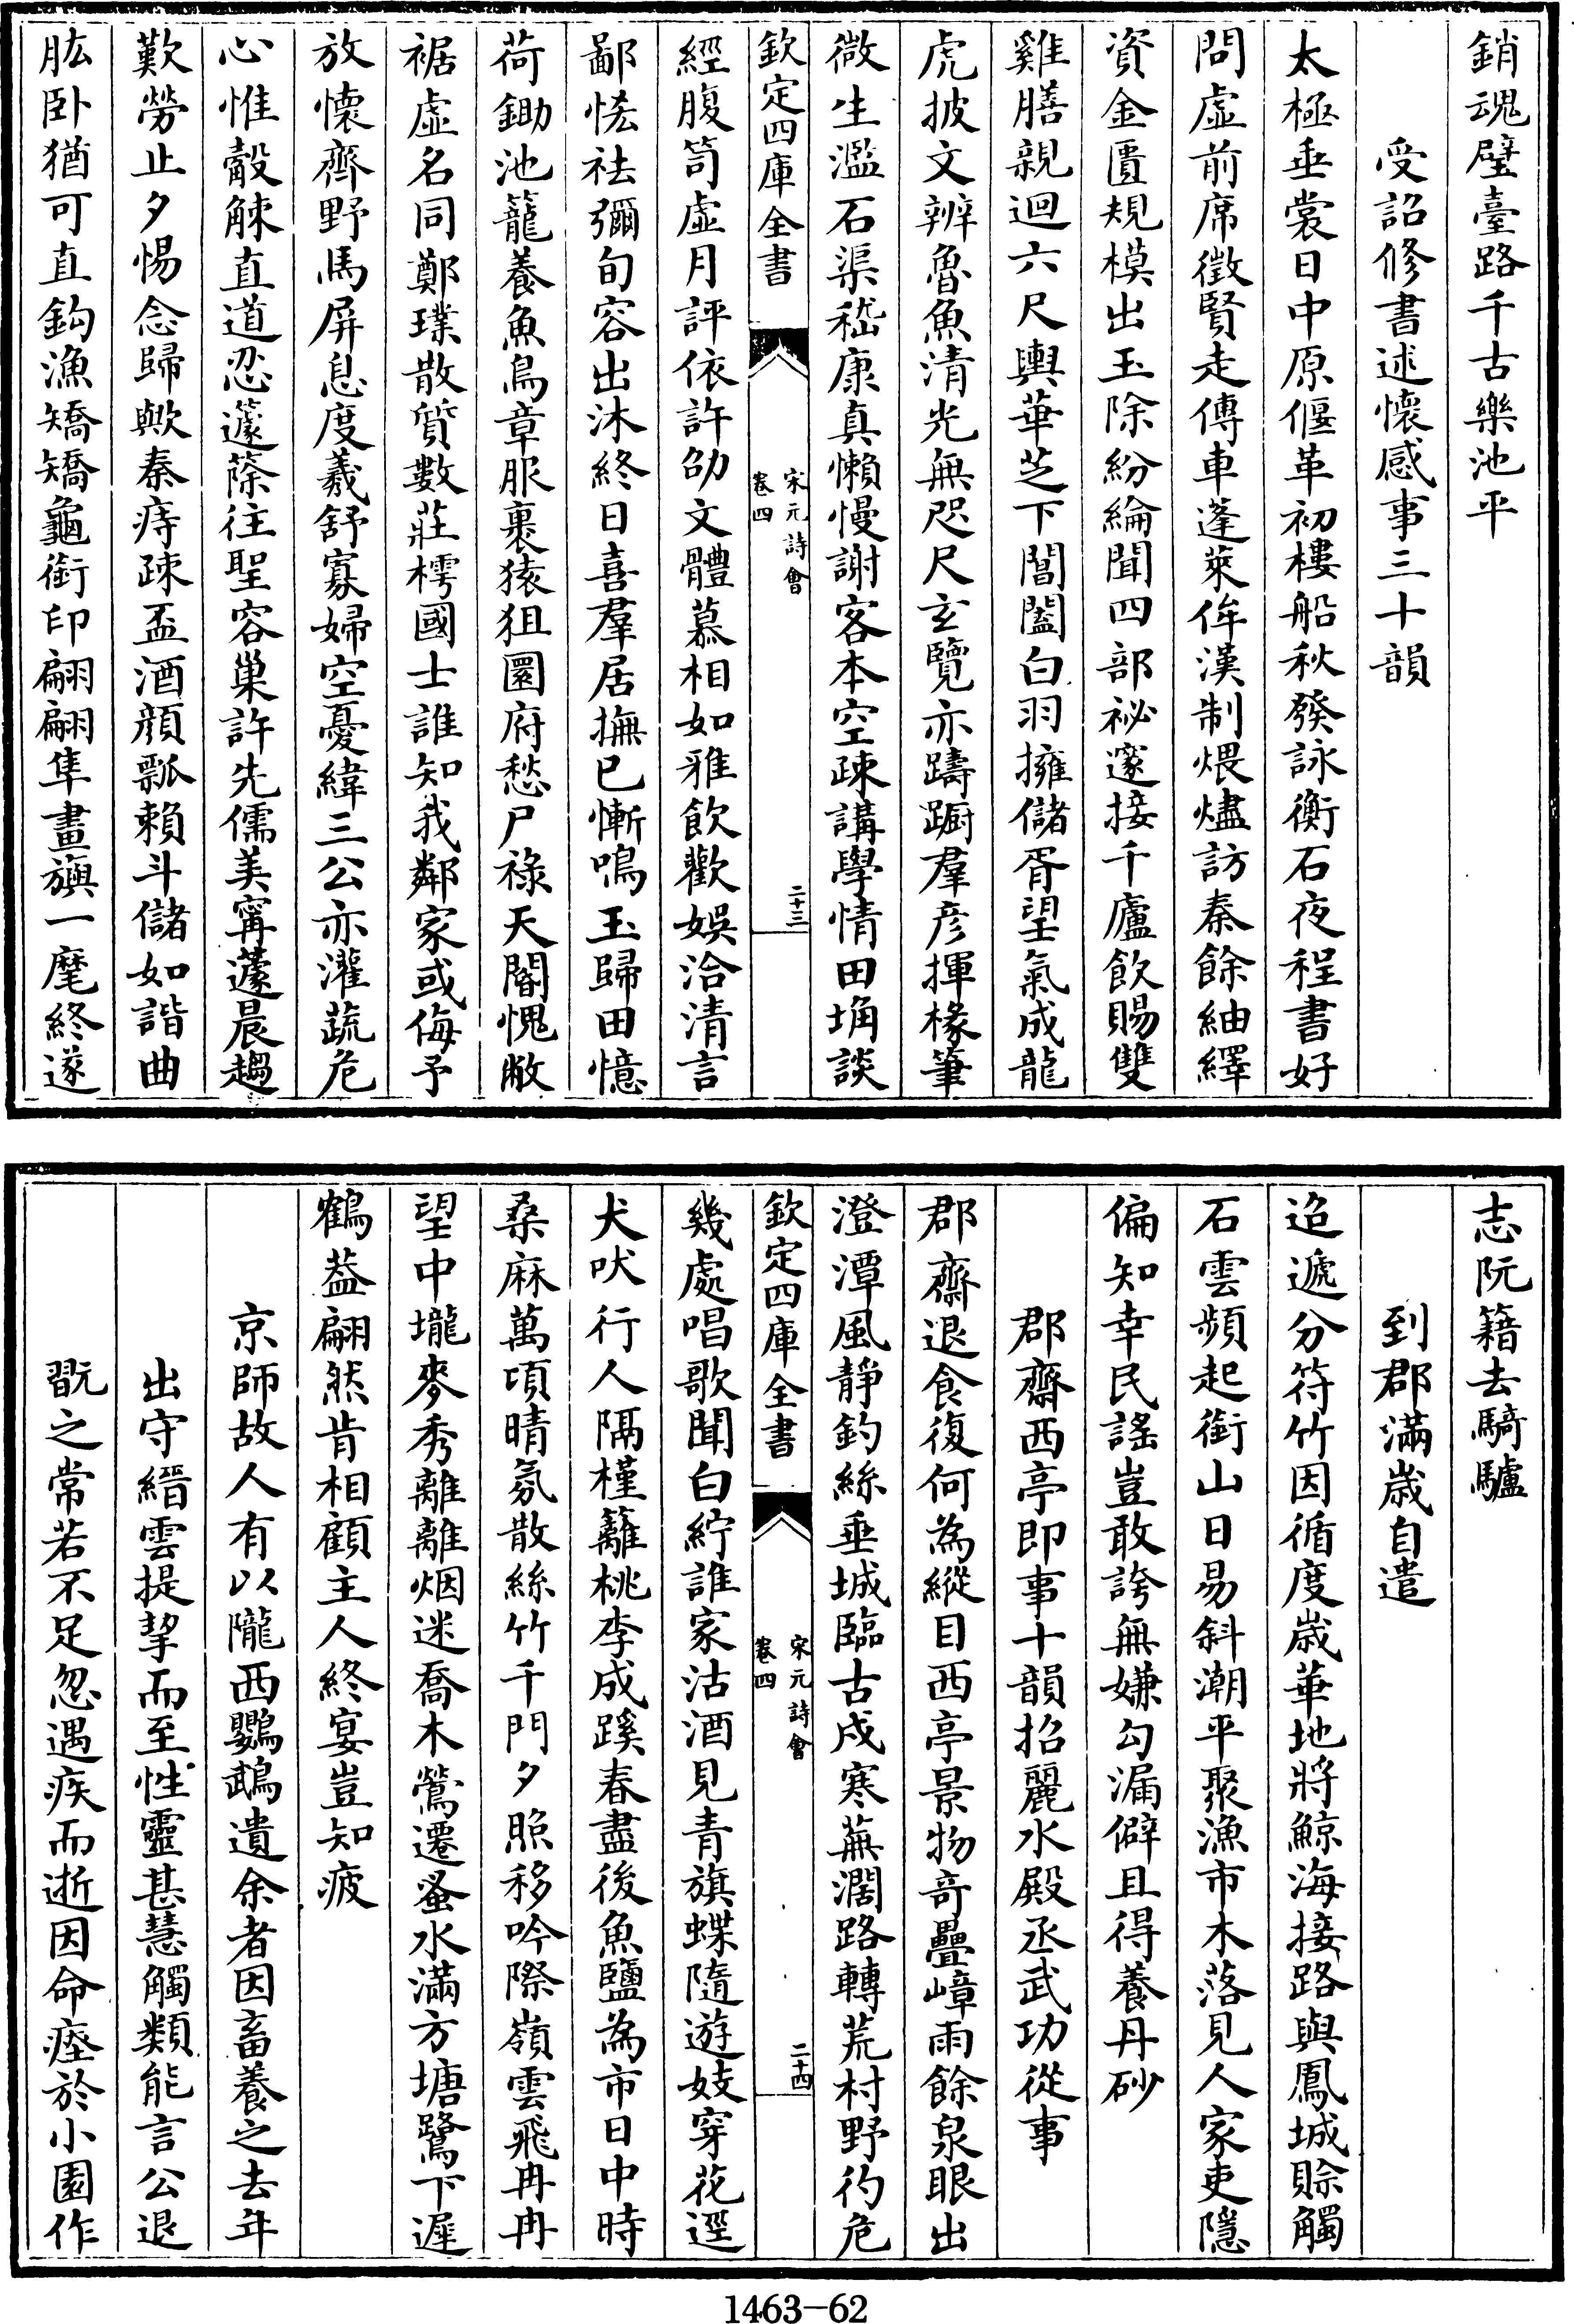 銷魂璧臺路千古樂池平
受詔修書述懷感事三十韻
太極垂裳日中原偃革初樓船秋發詠衡石夜程書好
問虛前席徵賢走傳車蓬萊侔漢制煨燼訪秦餘紬繹
資金匱規模出玉除紛綸聞四部祕邃接千廬飲賜雙
雞膳親迴六尺輿華芝下閶闔白羽擁儲胥望氣成龍
虎披文辨魯魚清光無咫尺玄覽亦躊躕羣彦揮椽筆
微生濫石渠嵇康真懶慢謝客本空疎講學情田埆談
欽定四庫全書
宋元詩會
卷四
二十三
經腹笥虛月評依許劭文體慕相如雅飲歡娛洽清言
鄙恡袪彌旬容出沐終日喜羣居撫已慚鳴玉歸田憶
荷鋤池籠養魚鳥章服裹猿狙圜府愁尸祿天閽愧敝
裾虛名同鄭璞散質數莊樗國士誰知我鄰家或侮予
放懷齊野馬屏息度羲舒寡婦空憂緯三公亦灌蔬危
心惟觳觫直道忍籧篨往聖容巢許先儒美甯蘧晨趨
歎勞止夕惕念歸歟秦痔疎盃酒顔瓢賴斗儲如諧曲
肱卧猶可直鈎漁矯矯龜銜印翩翩隼畫旟一麾終遂
志阮籍去騎驢
到郡滿歲自遣
迢遞分符竹因循度歲華地將鯨海接路與鳳城賖觸
石雲頻起銜山日易斜潮平聚漁市木落見人家吏隱
偏知幸民謠豈敢誇無嫌勾漏僻且得養丹砂
郡齋西亭即事十韻招麗水殿丞武功從事
郡齋退食復何為縱目西亭景物竒疊嶂雨餘泉眼出
澄潭風靜釣絲垂城臨古戍寒蕪濶路轉荒村野彴危
欽定四庫全書
宋元詩會
卷四
二十四
幾處唱歌聞白紵誰家沽酒見青旗蝶隨遊妓穿花逕
犬吠行人隔槿籬桃李成蹊春盡後魚鹽為市日中時
桑麻萬頃晴氛散絲竹千門夕照移吟際嶺雲飛冉冉
望中壠麥秀離離烟迷喬木鶯遷蚤水滿方塘鷺下遲
鶴葢翩然肯相顧主人終宴豈知疲
京師故人有以隴西鸚鵡遺余者因畜養之去年
出守縉雲提挈而至性靈甚慧觸類能言公退
翫之常若不足忽遇疾而逝因命瘞於小園作
1463-62